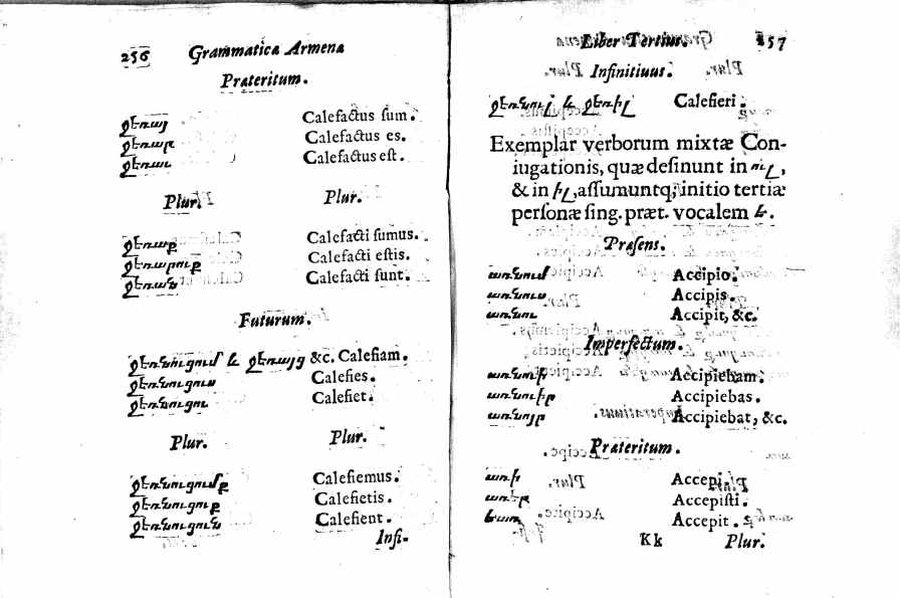 256 Grammatica Armena
Præteritum.
ջեռայ Calefactus sum.
ջեռար Calefactus es.
ջեռաւ Calefactus est.
Plur. Plur.
ջեռաք Calefacti sumus.
ջեռարուք Calefacti estis.
ջեռան Calefacti sunt.
Futurum.
ջեռնուցում և ջեռայց &c. Calefiam.
ջեռնուցուս Calefies.
ջեռնուցու Calefiet.
Plur. Plur.
ջեռնուցումք Calefiemus.
ջեռնուցուք Calefietis.
ջեռնուցուն Calefient.
Infi-
Liber Tertius. 257
Infinitiuus.
ջեռնուլ և ջեռիլ Calefieri.
Exemplar verborum mixtæ Con-
iugationis, quæ desinunt in ուլ,
& in իլ, assumuntq; initio tertiæ
personæ sing. præt. vocalem ե.
Præsens.
առնում Accipio.
առնուս Accipis.
առնու Accipit, &c.
Imperfectum.
առնուի Accipiebam.
առնուիր Accipiebas.
առնոյր Accipiebat, &c.
Præteritum.
առի Accepi.
առեր Accepisti.
եառ Accepit.
Kk Plur.